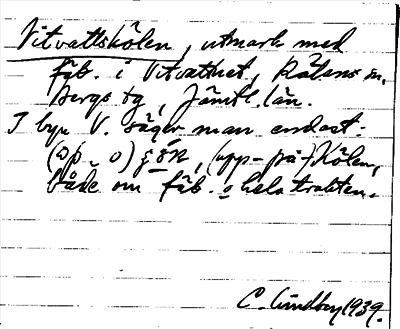 Vitvattskölen, utmark med
fäb. i Vitvattnet, Rätans sn,
Bergs tg, Jämtl. län.
I byn V. säger man endast:
(op - o) , (upp-på-)Kölen,
både om fäb. o hela trakten.
C. Lindberg 1939.